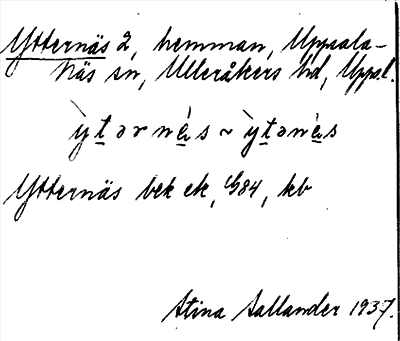 Ytternäs 2, hemman, Uppsala-
Näs sn, Ulleråkers hd, Uppl.
`yṯərnè̱s ~ `yṯənè̱s
Ytternäs bek ek, G84, kb
Stina Sallander 1937.